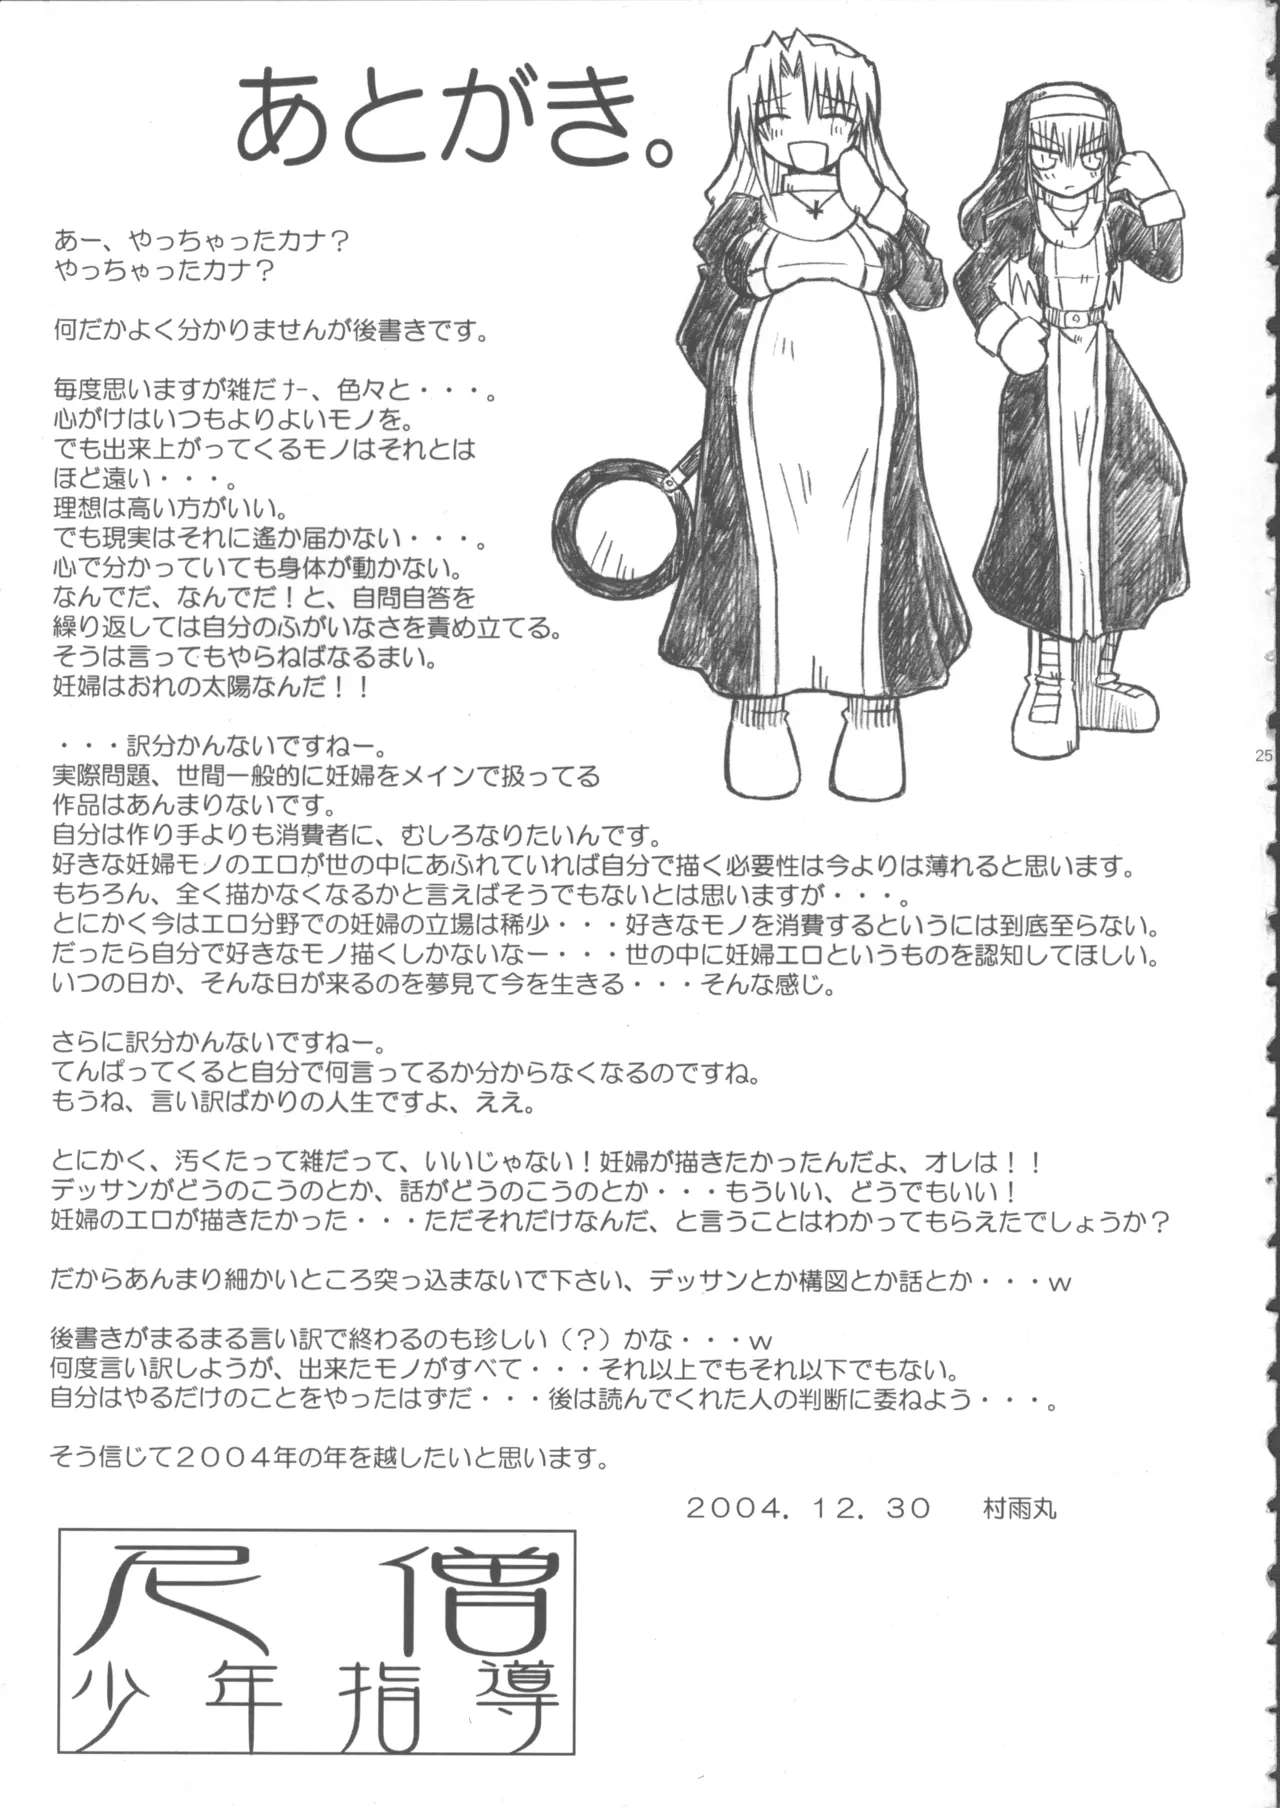 あとがき。
あー、やっちゃったカナ？
やっちゃったカナ？
何だかよく分かりませんが後書きです。
毎度思いますが雑だﾅｰ、色々と・・・。
心がけはいつもよりよいモノを。
でも出来上がってくるモノはそれとは
ほど遠い・・・。
理想は高い方がいい。
でも現実はそれに遙か届かない・・・。
心で分かっていても身体が動かない。
なんでだ、なんでだ！と、自問自答を
繰り返しては自分のふがいなさを責め立てる。
そうは言ってもやらねばなるまい。
妊婦はおれの太陽なんだ！！
・・・訳分かんないですねー。
実際問題、世間一般的に妊婦をメインで扱ってる
作品はあんまりないです。
自分は作り手よりも消費者に、むしろなりたいんです。
好きな妊婦モノのエロが世の中にあふれていれば自分で描く必要性は今よりは薄れると思います。
もちろん、全く描かなくなるかと言えばそうでもないとは思いますが・・・。
とにかく今はエロ分野での妊婦の立場は稀少・・・好きなモノを消費するというには到底至らない。
だったら自分で好きなモノ描くしかないなー・・・世の中に妊婦エロというものを認知してほしい。
いつの日か、そんな日が来るのを夢見て今を生きる・・・そんな感じ。
さらに訳分かんないですねー。
てんぱってくると自分で何言ってるか分からなくなるのですね。
もうね、言い訳ばかりの人生ですよ、ええ。
とにかく、汚くたって雑だって、いいじゃない！妊婦が描きたかったんだよ、オレは！！
デッサンがどうのこうのとか、話がどうのこうのとか・・・もういい、どうでもいい！
妊婦のエロが描きたかった・・・ただそれだけなんだ、と言うことはわかってもらえたでしょうか？
だからあんまり細かいところ突っ込まないで下さい、デッサンとか構図とか話とか・・・ｗ
後書きがまるまる言い訳で終わるのも珍しい（？）かな・・・ｗ
何度言い訳しようが、出来たモノがすべて・・・それ以上でもそれ以下でもない。
自分はやるだけのことをやったはずだ・・・後は読んでくれた人の判断に委ねよう・・・。
そう信じて２００４年の年を越したいと思います。
２００４．１２．３０　村雨丸
尼僧
少年指導
25